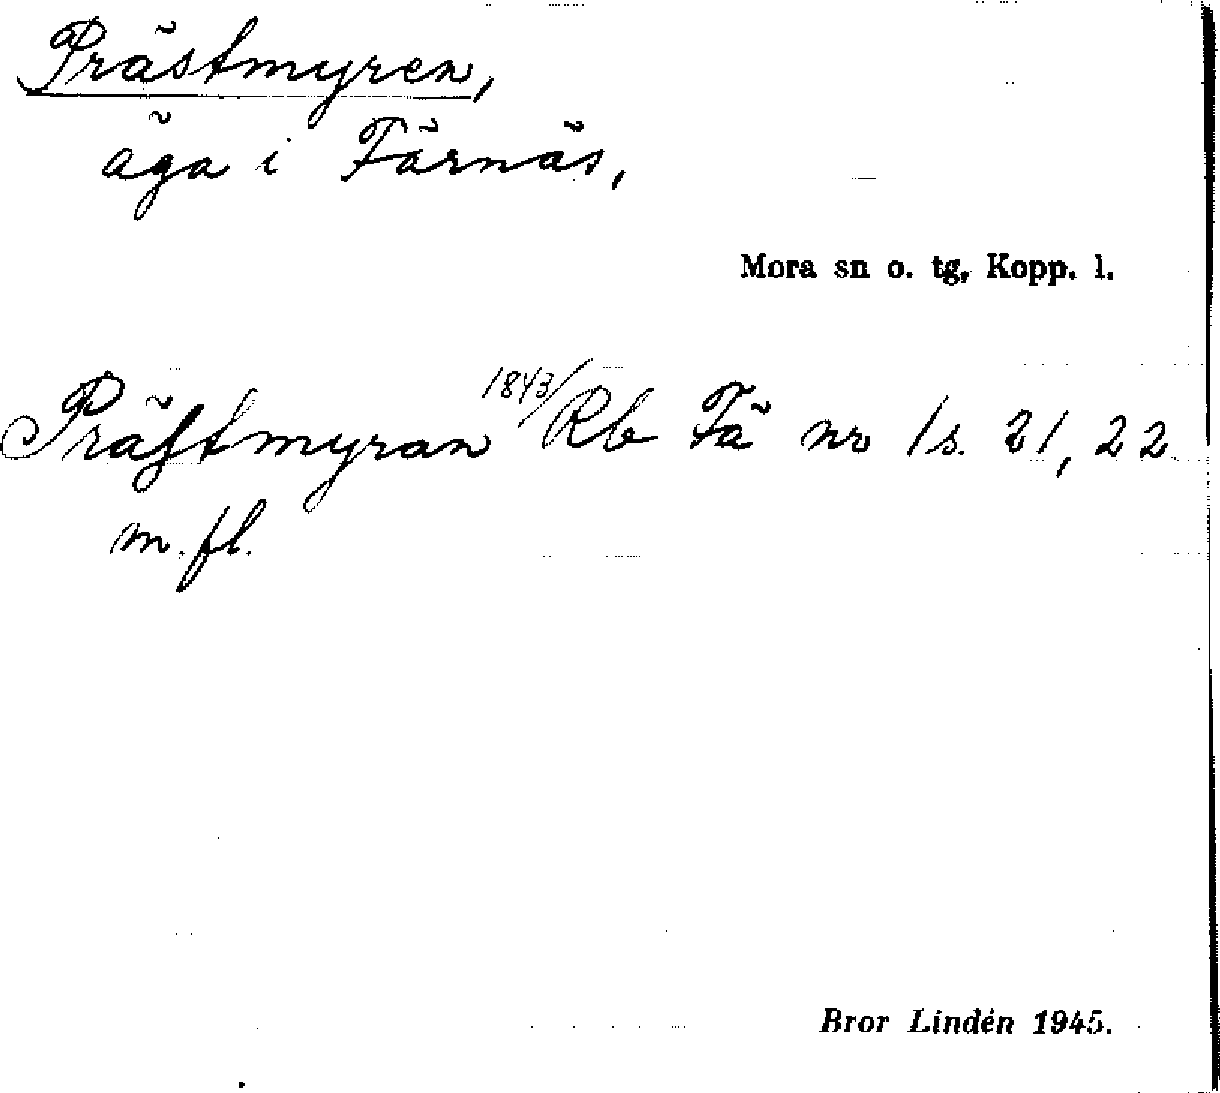 Prästmyren,
äga i Färnäs,
Mora sn o. tg, Kopp. l.
Präſtmyran 1843/ Rb Fä nr 1 s. 21, 22
m. fl.
Bror Lindén 1945.